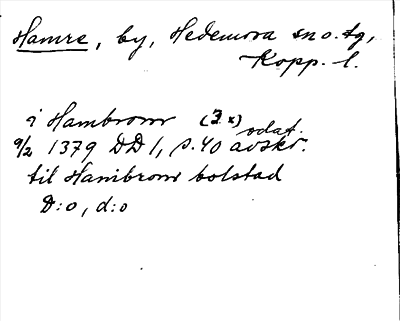 Hamre, by, Hedemora sn o. tg,
Kopp. l.
i Hambrom (3x)
odat.
9/2 1379 DD 1, s. 40 avskr.
til Hambrom bolstad
D:o, d:o